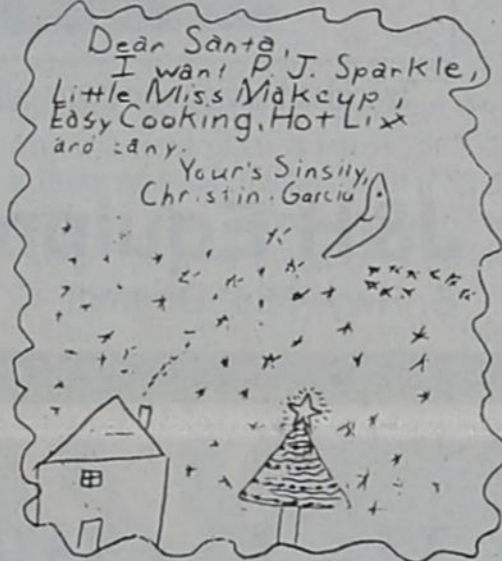 Dear Santa,
I want P. J. Sparkle,
Little Miss Makeup,
Easy Cooking, Hot Lix
and cany.
Your's Sinsily,
Christin Garcia